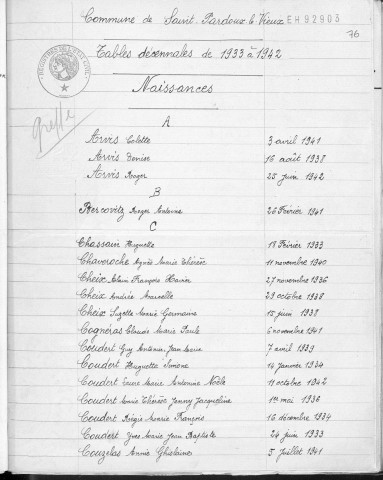 Commune de Saint Pardoux le Vieux EH 92903
76
Tables décennales de 1933 à 1942
Greffe
Naissances
A
Arvis Colette 3 avril 1941
Arvis Denise 16 août 1938
Arvis Roger 25 juin 1942
B
Bercovitz Roger Antoine 26 Février 1941
C
Chassain Huguette 18 Février 1933
Chaveroche Agnès Marie Thérèse 11 novembre 1940
Cheix Alain François Xavier 27 novembre 1936
Cheix Andrée Marcelle 29 octobre 1938
Cheix Suzette Marie Germaine 15 juin 1938
Cogneras Claude Marie Paule 6 novembre 1941
Coudert Guy Antonin Jean Marie 7 avril 1939
Coudert Huguette Simone 14 janvier 1934
Coudert Marie Antonine Noële 11 octobre 1942
Coudert Marie Thérèse Jenny Jacqueline 1er mai 1936
Coudert Régis Marie François 16 décembre 1934
Coudert Yves Marie Jean Baptiste 24 juin 1933
Couzelas Annie Ghislaine 5 juillet 1941